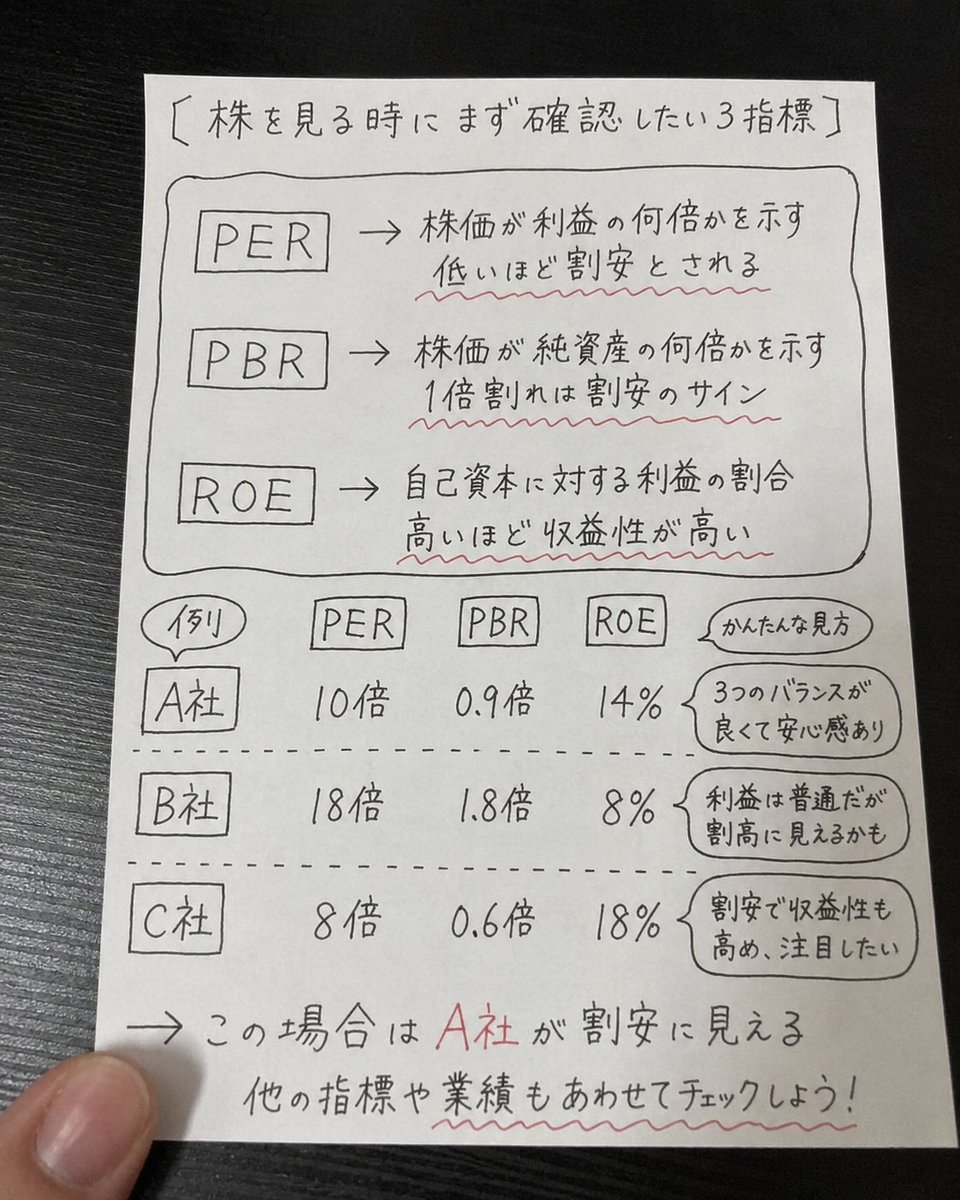 [株を見る時にまず確認したい3指標]
PER → 株価が利益の何倍かを示す
低いほど割安とされる
PBR → 株価が純資産の何倍かを示す
1倍割れは割安のサイン
ROE → 自己資本に対する利益の割合
高いほど収益性が高い
例 PER PBR ROE かんたんな見方
A社 10倍 0.9倍 14% 3つのバランスが
良くて安心感あり
B社 18倍 1.8倍 8% 利益は普通だが
割高に見えるかも
C社 8倍 0.6倍 18% 割安で収益性も
高め、注目したい
→ この場合はA社が割安に見える
他の指標や業績もあわせてチェックしよう!